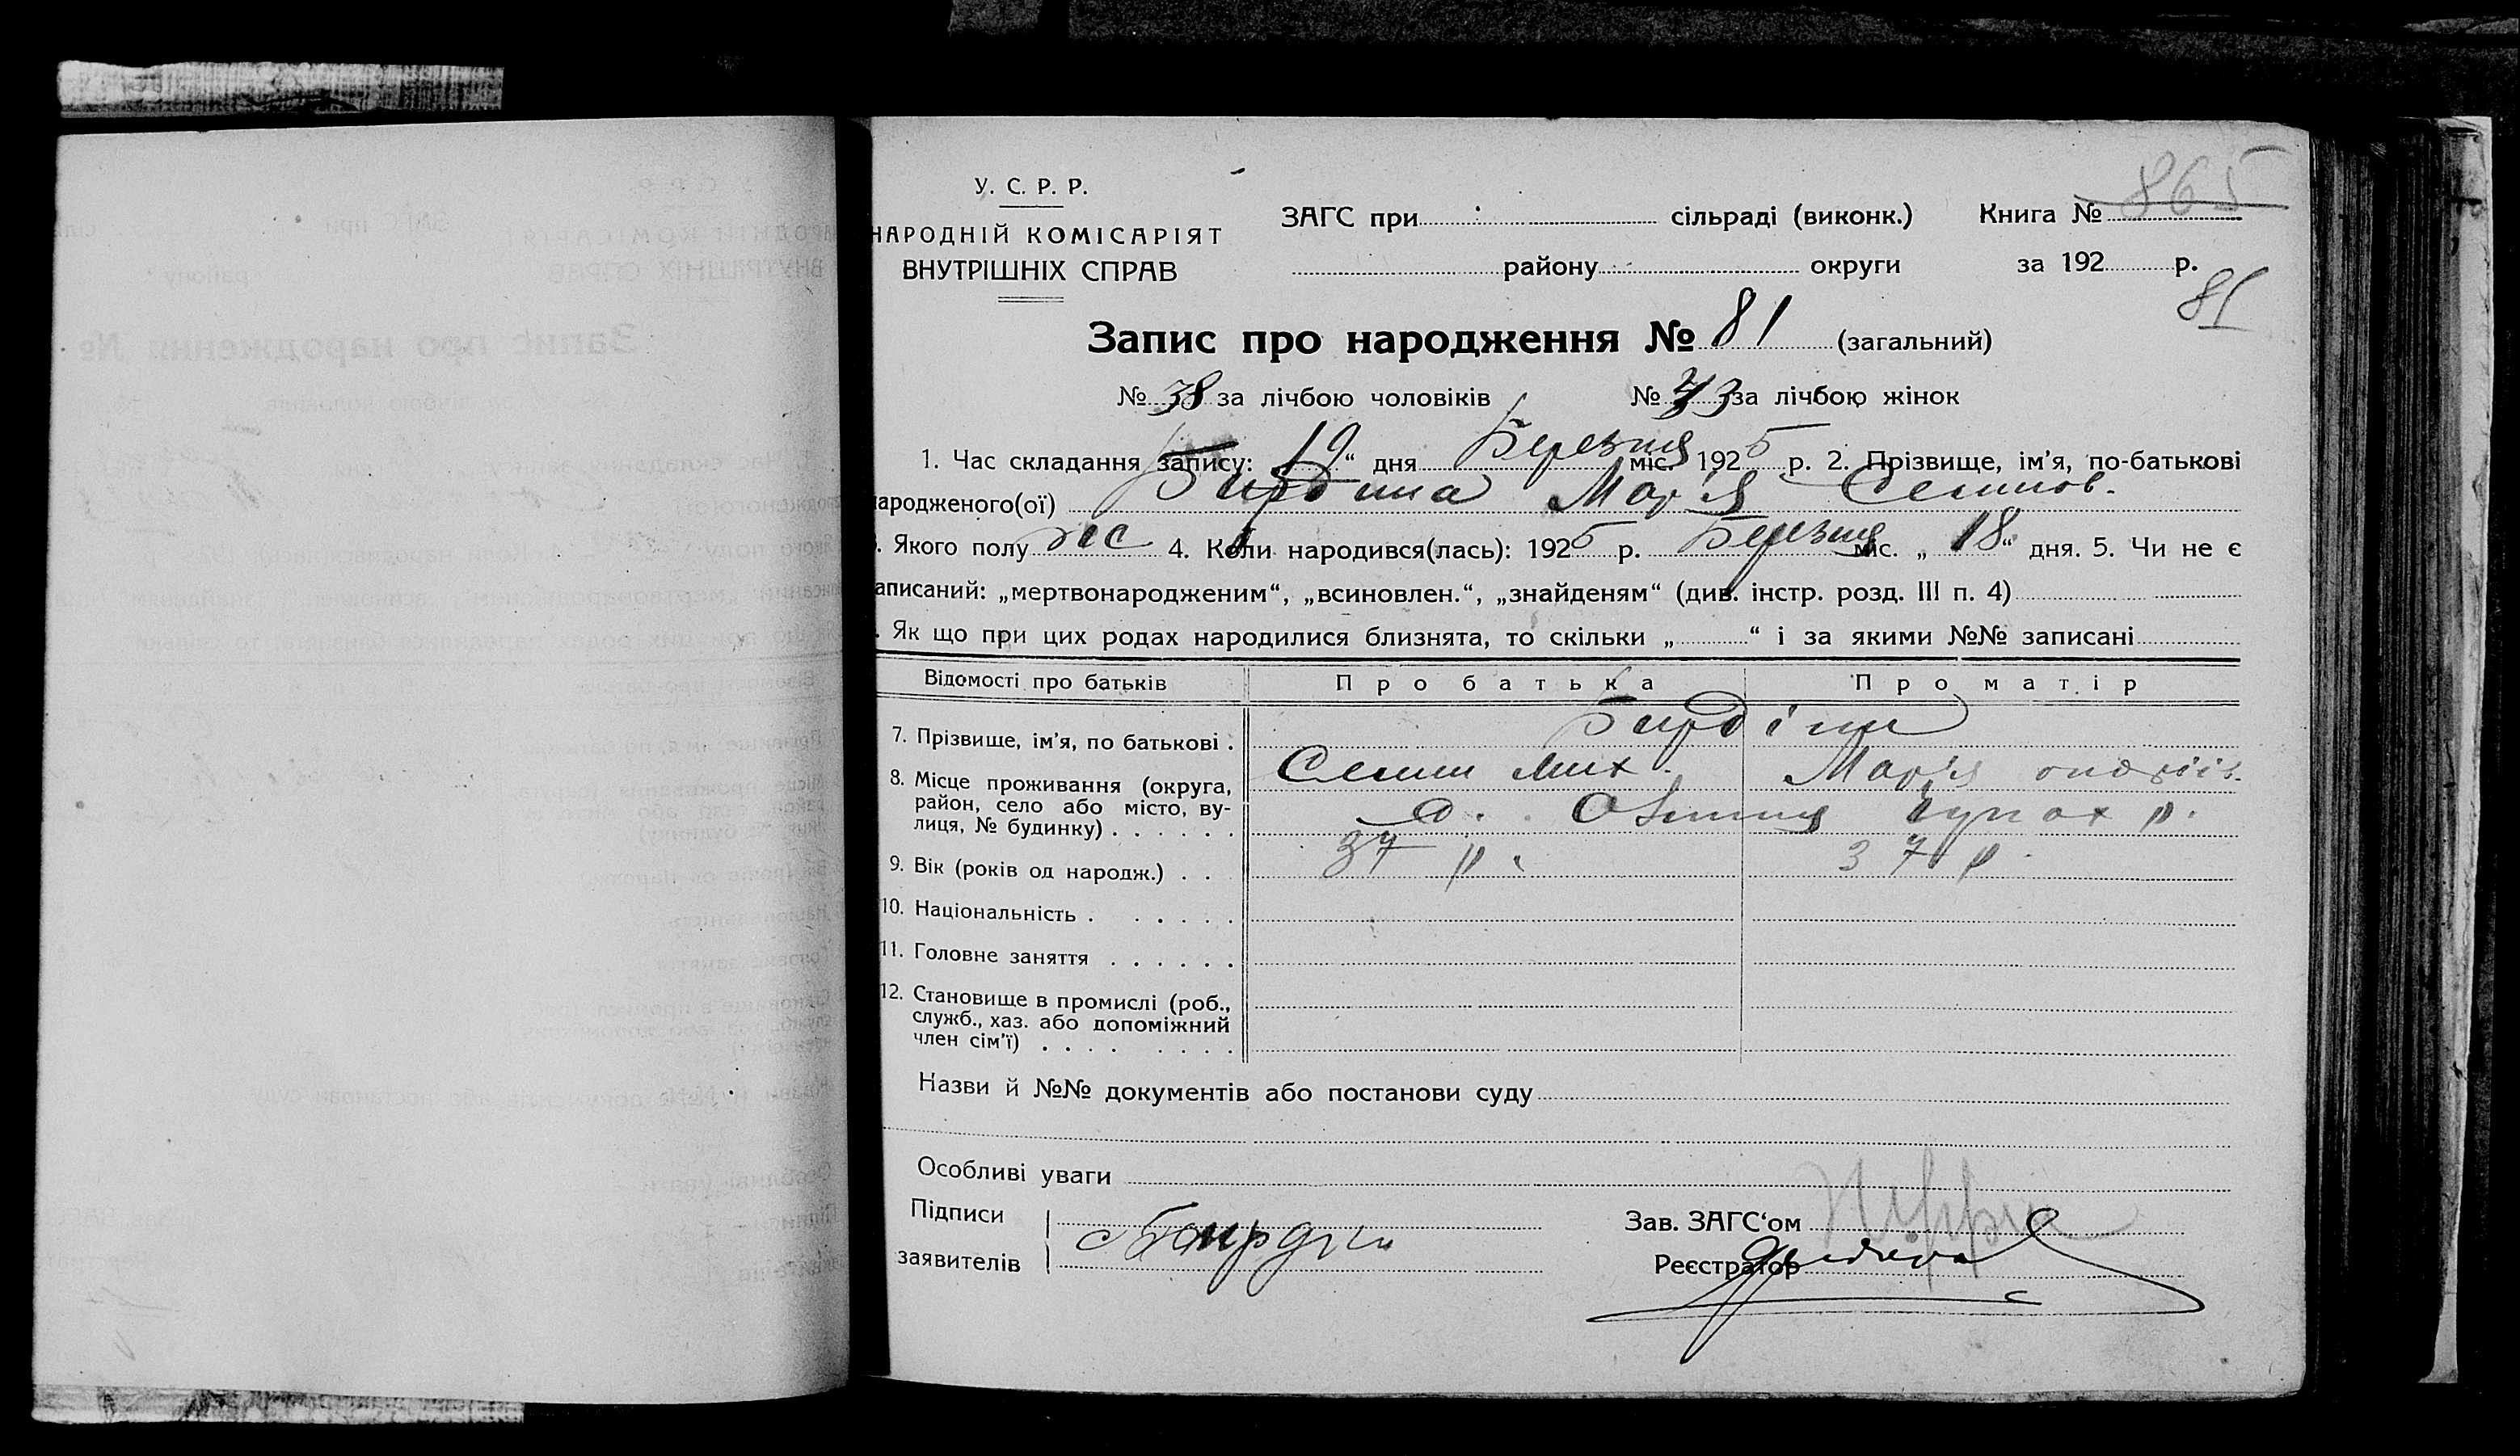 865
У. С. Р. Р.
НАРОДНІЙ КОМІСАРІЯТ
ВНУТРІШНІХ СПРАВ
ЗАГС при сільраді (виконк.) Книга №
району округи за 192 р.
81
Запис про народження № 81 (загальний)
№ 38 за лічбою чоловіків № 43 за лічбою жінок
1. Час складання запису: „19“ дня Березня міс. 1925 р. 2. Прізвище, ім'я, по-батькові
народженого(ої) Бирдина Мар'я Семинов.
. Якого полу жс 4. Коли народився(лась): 1925 р. Березня міс. „18“ дня. 5. Чи не є
аписаний: „мертвонародженим“, „всиновлен.“, „знайденям“ (див. інстр. розд. III п. 4)
. Як що при цих родах народилися близнята, то скільки „ “ і за якими №№ записані
Відомості про батьків Про батька Про матір
7. Прізвище, ім'я, по батькові . Бирдіни
Семин Мих. Мар'я
8. Місце проживання (округа, район, село або місто, вулиця, № будинку) . . . . . . р.
9. Вік (років од народж.) . . 37 р. 37 р.
10. Національність . . . . . .
11. Головне заняття . . . . . .
12. Становище в промислі (роб., служб., хаз. або допоміжний член сім'ї) . . . . . . . .
Назви й №№ документів або постанови суду
Особливі уваги
Підписи
заявителів
Зав. ЗАГС'ом
Реєстратор